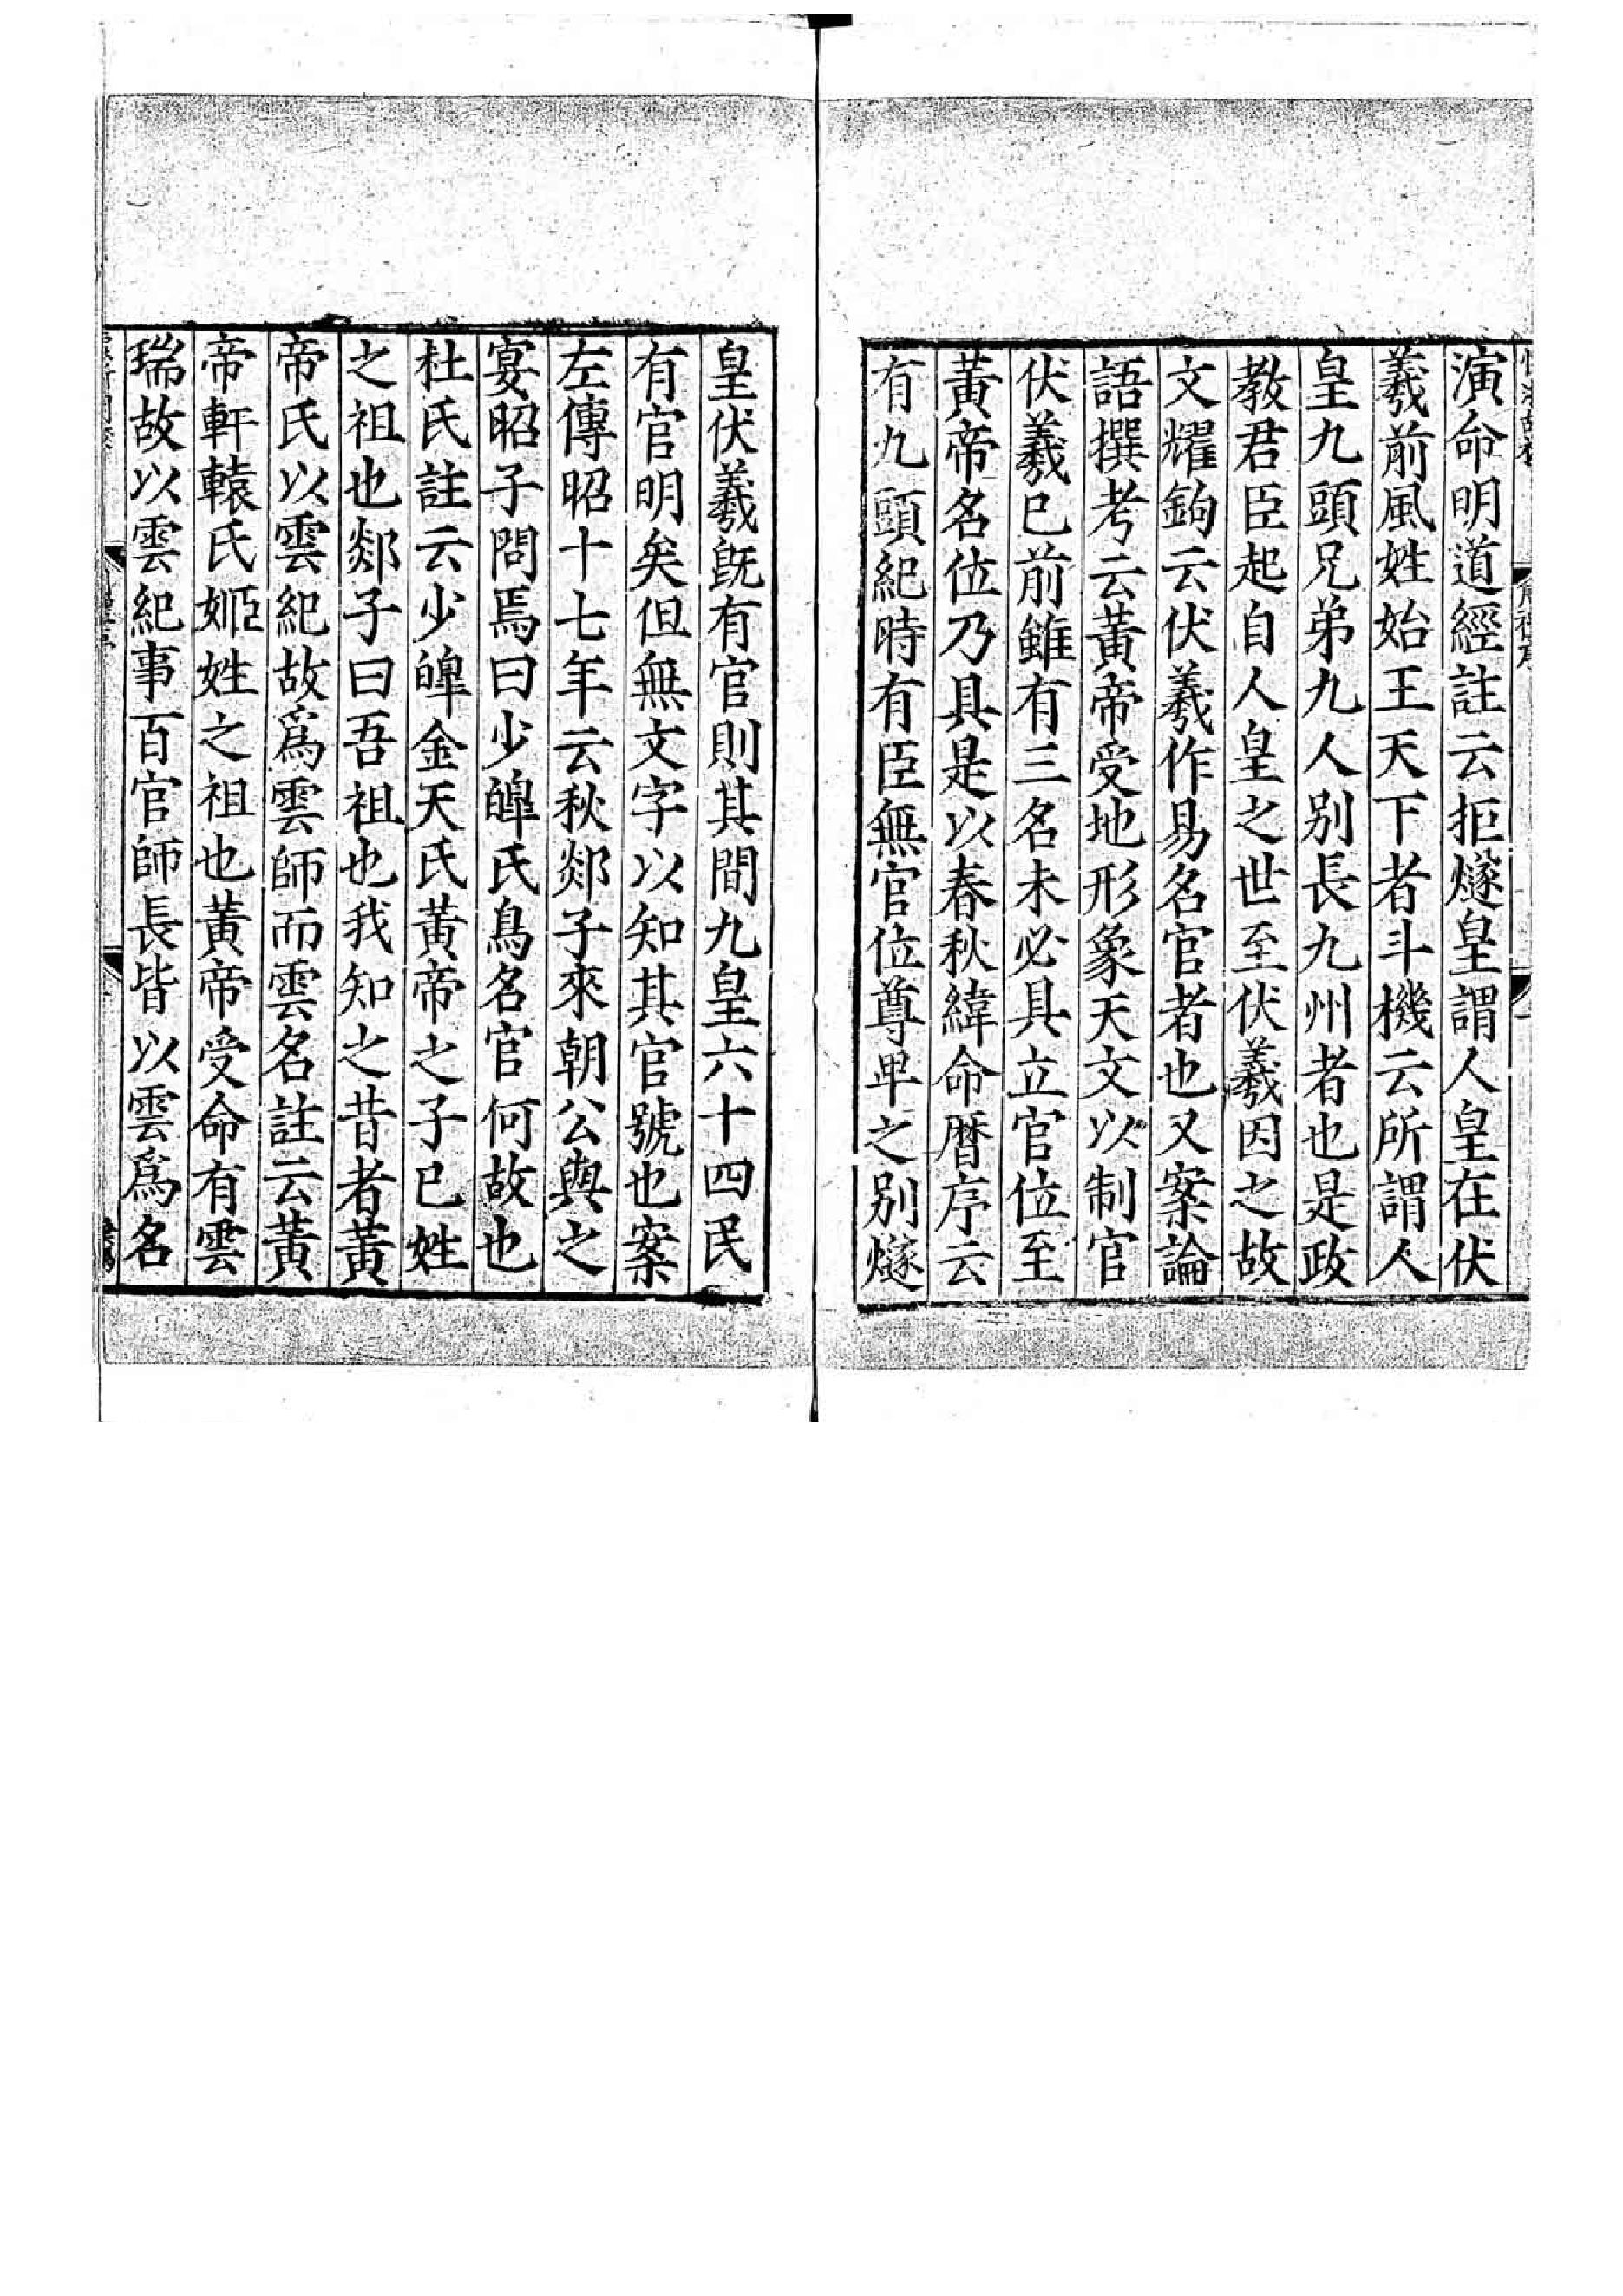 演命明道經註云拒燧皇謂人皇在伏
羲前風姓始王天下者斗機云所謂人
皇九頭兄弟九人別長九州者也是政
教君臣起自人皇之世至伏羲因之故
文耀鉤云伏羲作易名官者也又案論
語撰考云黃帝受地形象天文以制官
伏羲已前雖有三名未必具立官位至
黃帝名位乃具是以春秋緯命曆序云
有九頭紀時有臣無官位尊卑之別燧
皇伏羲旣有官則其間九皇六十四民
有官明矣但無文字以知其官號也案
左傳昭十七年云秋郯子來朝公與之
宴昭子問焉曰少皞氏鳥名官何故也
杜氏註云少皞金天氏黃帝之子巳姓
之祖也郯子曰吾祖也我知之昔者黃
帝氏以雲紀故爲雲師而雲名註云黃
帝軒轅氏姬姓之祖也黃帝受命有雲
瑞故以雲紀事百官師長皆以雲爲名